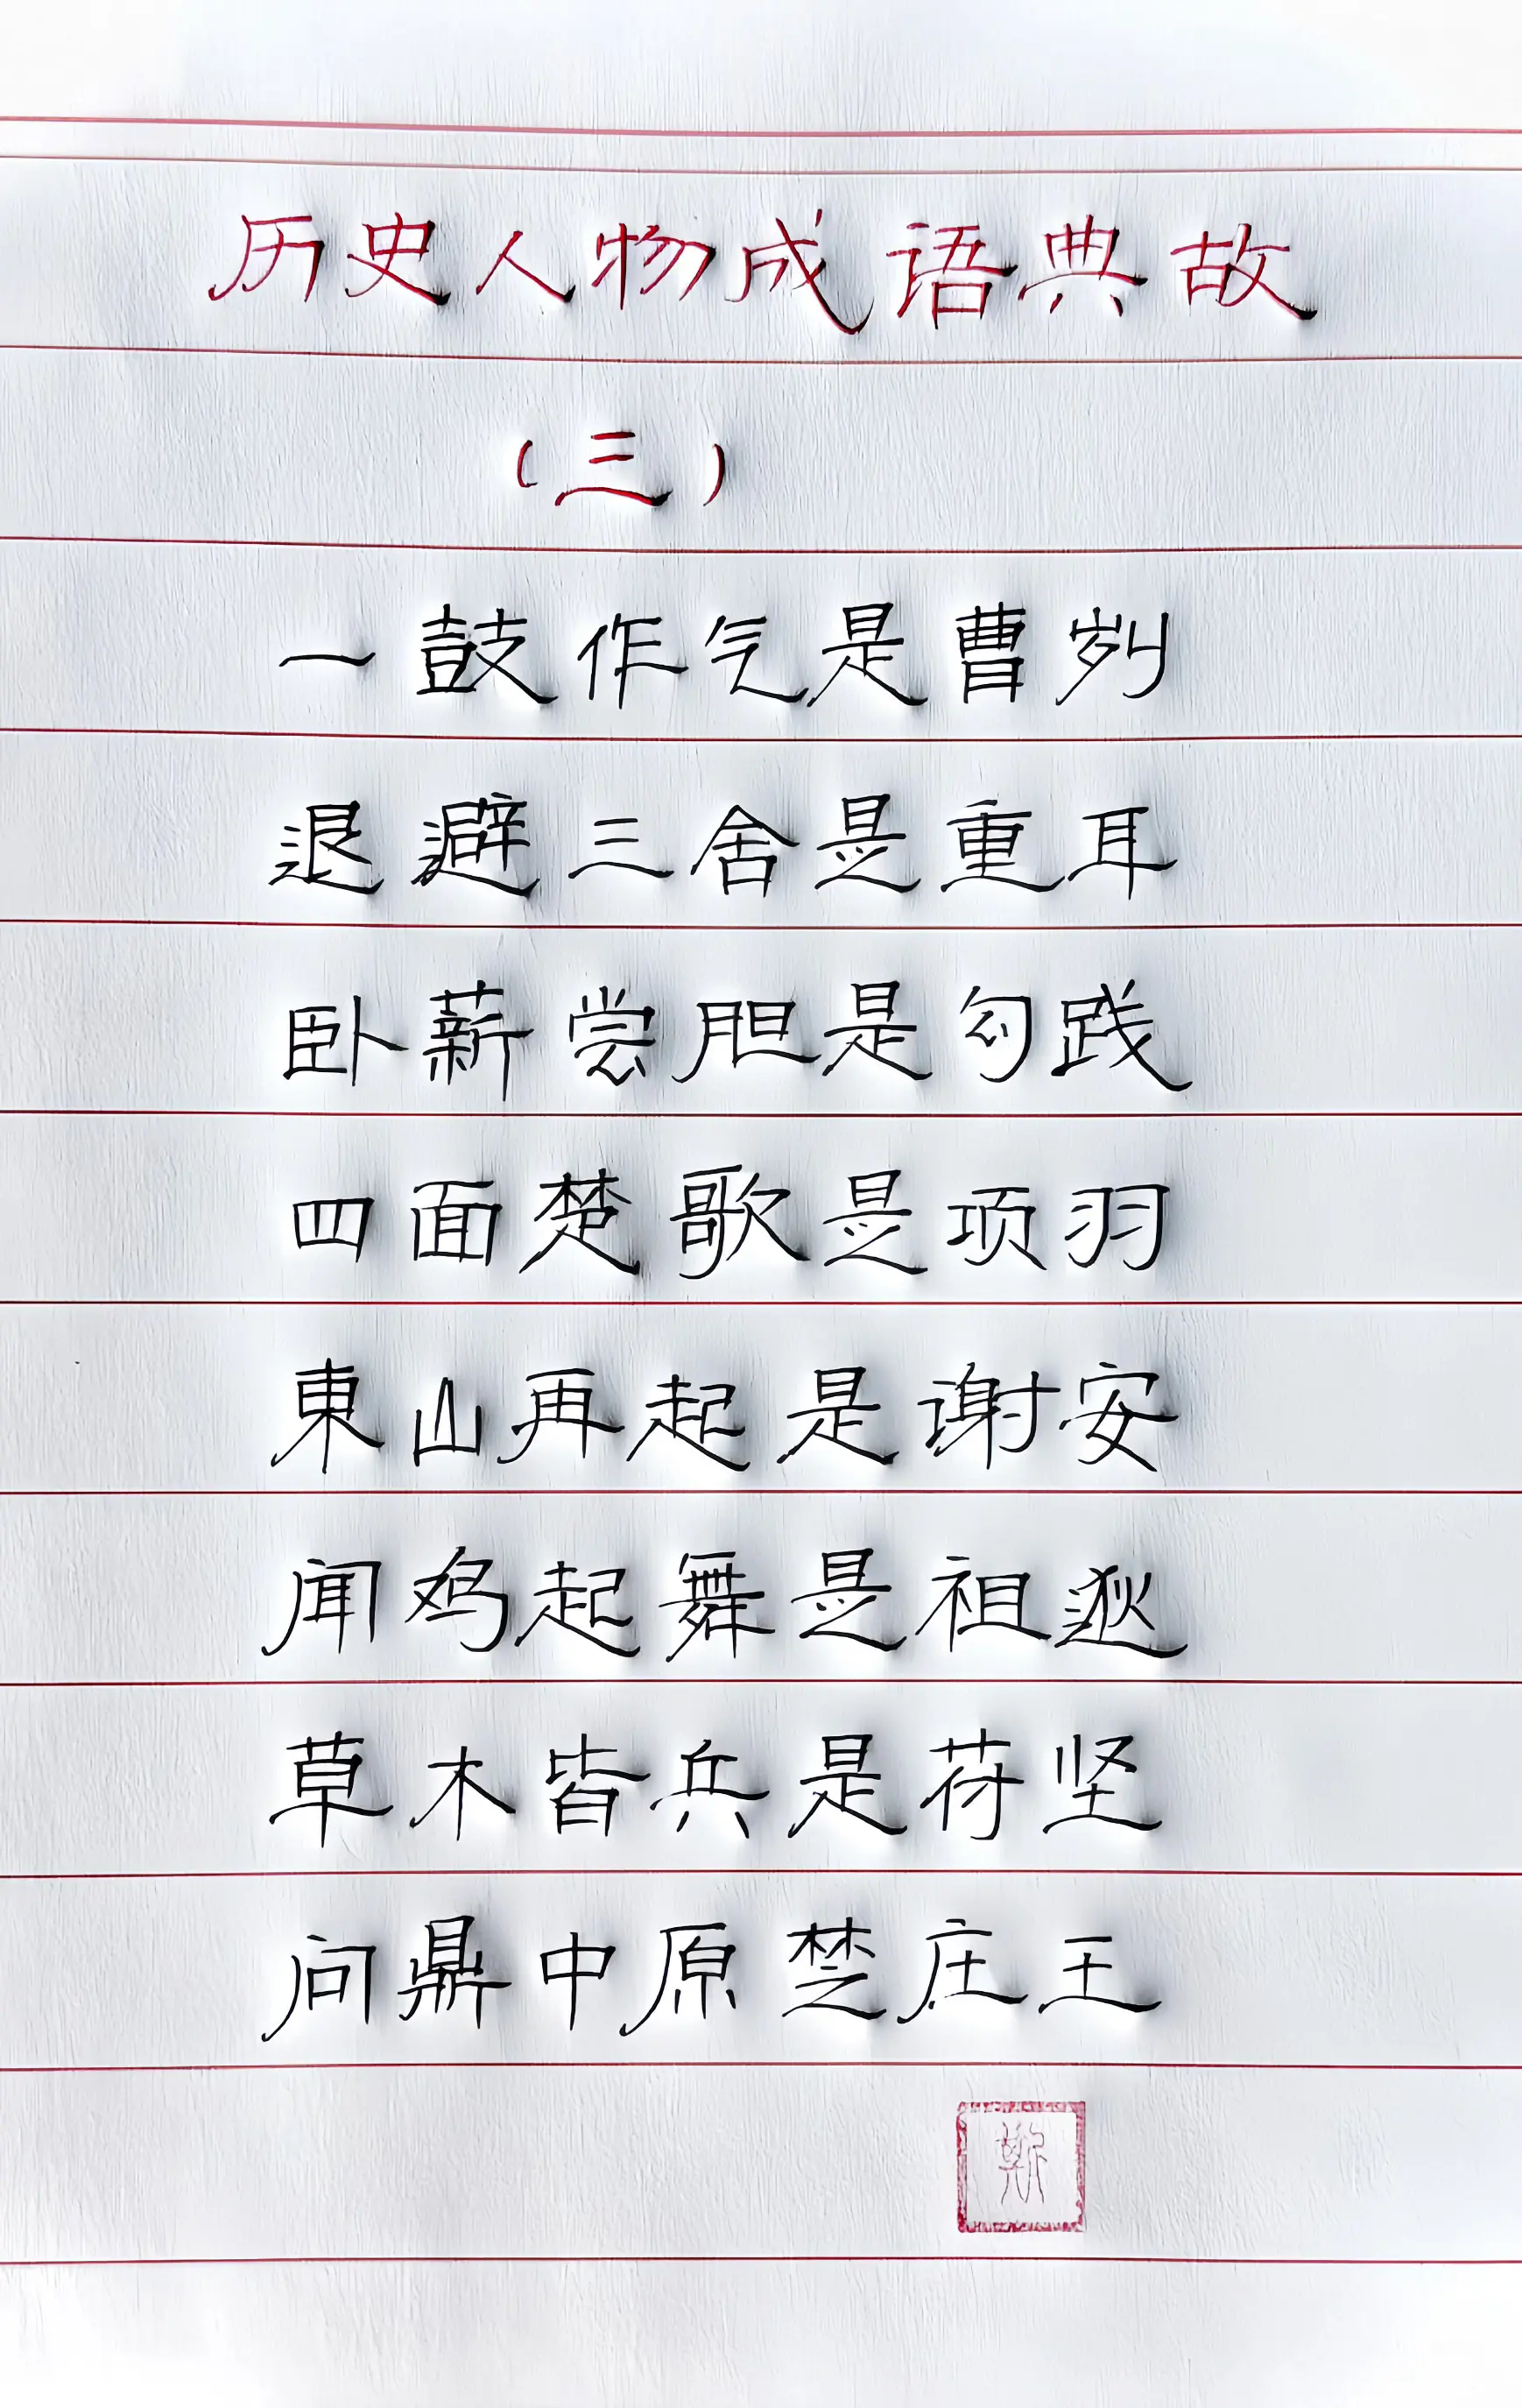 历史人物成语典故
（三）
一鼓作气是曹刿
退避三舍是重耳
卧薪尝胆是勾践
四面楚歌是项羽
東山再起是谢安
闻鸡起舞是祖逖
草木皆兵是苻坚
问鼎中原楚庄王